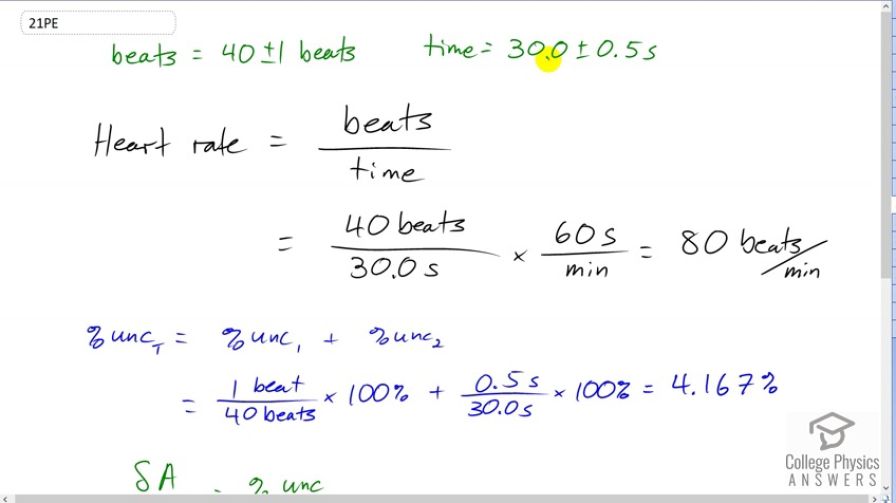 21PE
beats = 40 ±1 beats time = 30.0 ± 0.5 s
Heart rate = beats / time
= 40 beats / 30.0 s × 60 s / min = 80 beats/min
% unc_T = % unc_1 + % unc_2
= 1 beat / 40 beats × 100% + 0.5 s / 30.0 s × 100% = 4.167%
δA = % unc
College Physics
ANSWERS